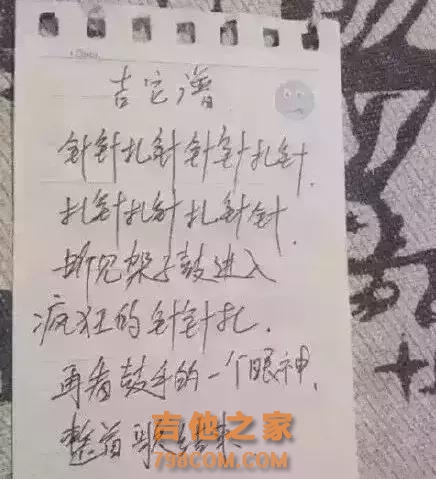 吉它谱
针针扎针针针扎针.
扎针扎针扎针针.
听见架子鼓进入
疯狂的针针扎.
再看鼓手的一个眼神,
整首歌结束
吉他之家
798COM.COM